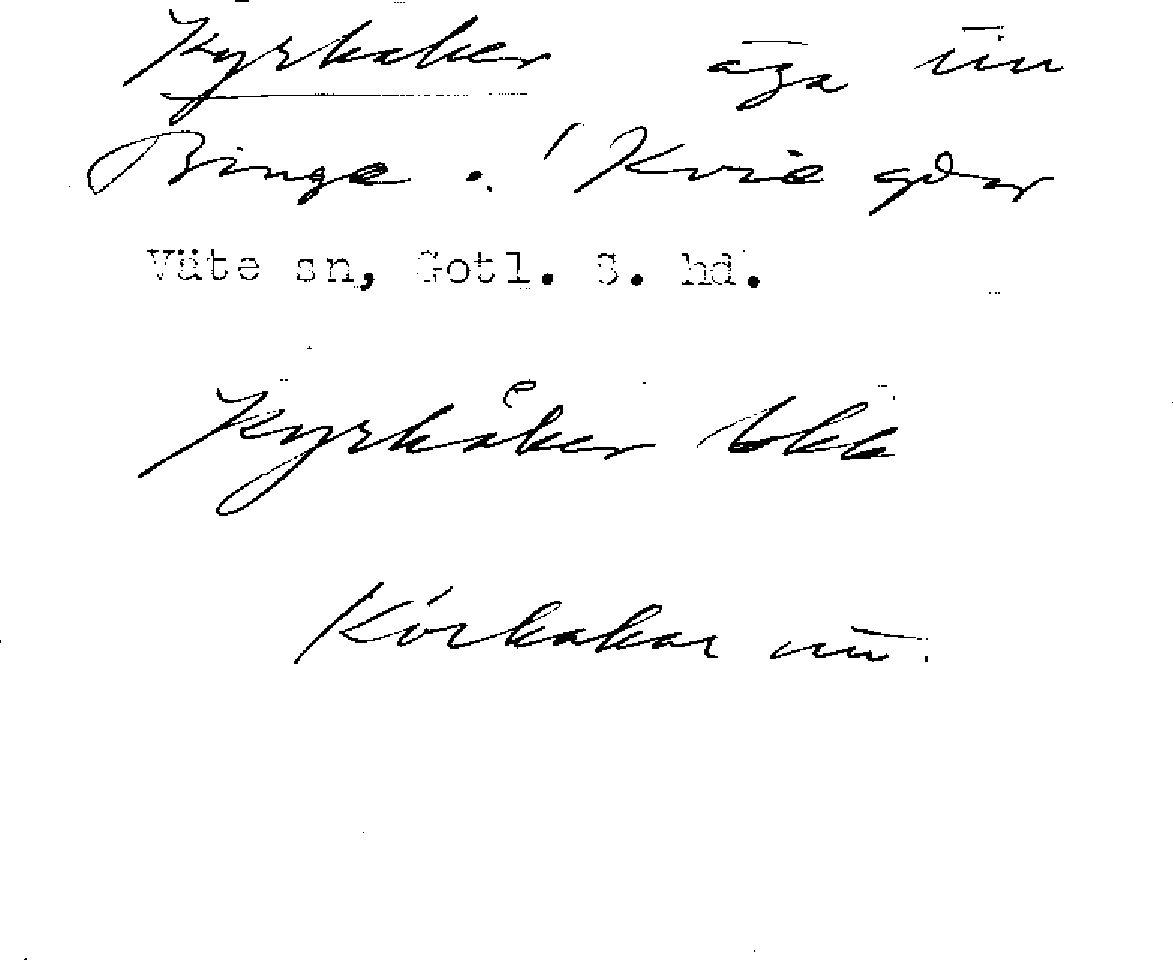 Kyrkaker äga un
Binge o. Kvie gdar
Väte sn, Gotl. S. hd.
Kyrkåker
Körkakar un.